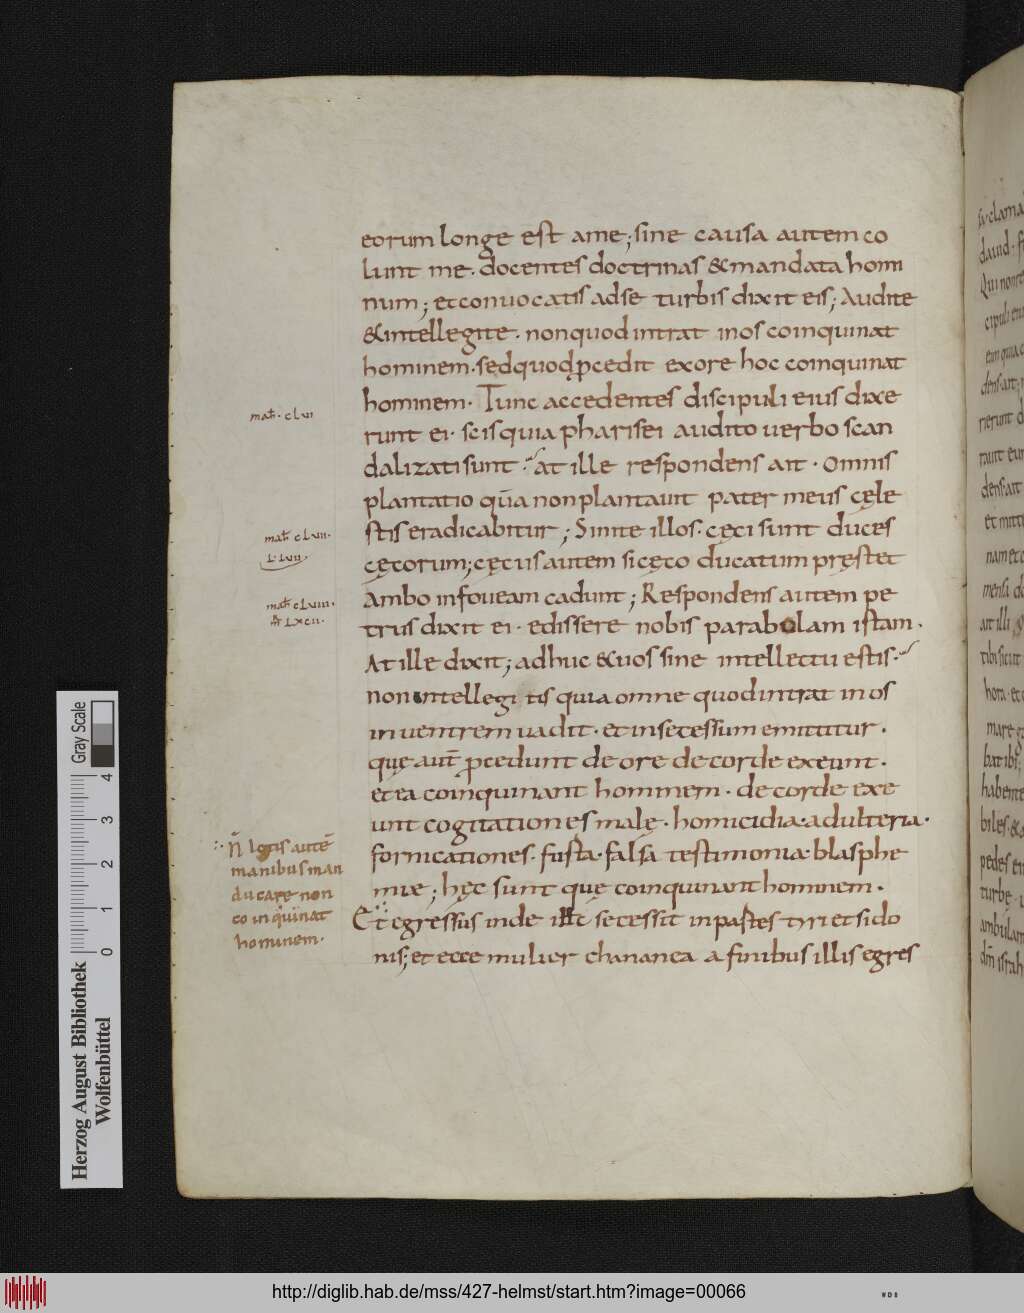 eorum longe est ame; sine causa autem co
lunt me. docentes doctrinas & mandata homi
num; et conuocatis ad se turbis dixit eis; Audite
& intellegite. non quod intrat in os coinquinat
hominem. sed quod ꝓcedit ex ore hoc coinquinat
hominem. Tunc accedentes discipuli eius dixe
runt ei. scis quia pharisei audito uerbo scan
dalizati sunt. at ille respondens ait. Omnis
plantatio quā non plantauit pater meus cęle
stis eradicabitur; Sinite illos. cęci sunt duces
cęcorum; cęcus autem si cęco ducatum pręstet
Ambo in foueam cadunt; Respondens autem pe
trus dixit ei. edissere nobis parabolam istam.
At ille dixit; adhuc & uos sine intellectu estis.
non intellegi tis quia omne quod intrat in os
in uentrem uadit. et in secessum emittitur.
quę aut̄ ꝓcedunt de ore de corde exeunt.
et ea coinquinant hominem. de corde exe
unt cogitationes malę. homicidia. adulteria.
fornicationes. furta. falsa testimonia. blasphe
mię; hęc sunt quę coinquinant hominem.
Et egressus inde ihc secessit in partes tyri et sido
nis; et ecce mulier chananea a finibus illis egres
mat̄. clvi
mat̄ clvii.
L. Lvii.
mat̄ clviii.
mr̄ Lxcii.
N̄ lotis autē
manibus man
ducare non
coinquinat
hominem.
Herzog August Bibliothek
Wolfenbüttel
Gray Scale
0 1 2 3 4
http://diglib.hab.de/mss/427-helmst/start.htm?image=00066